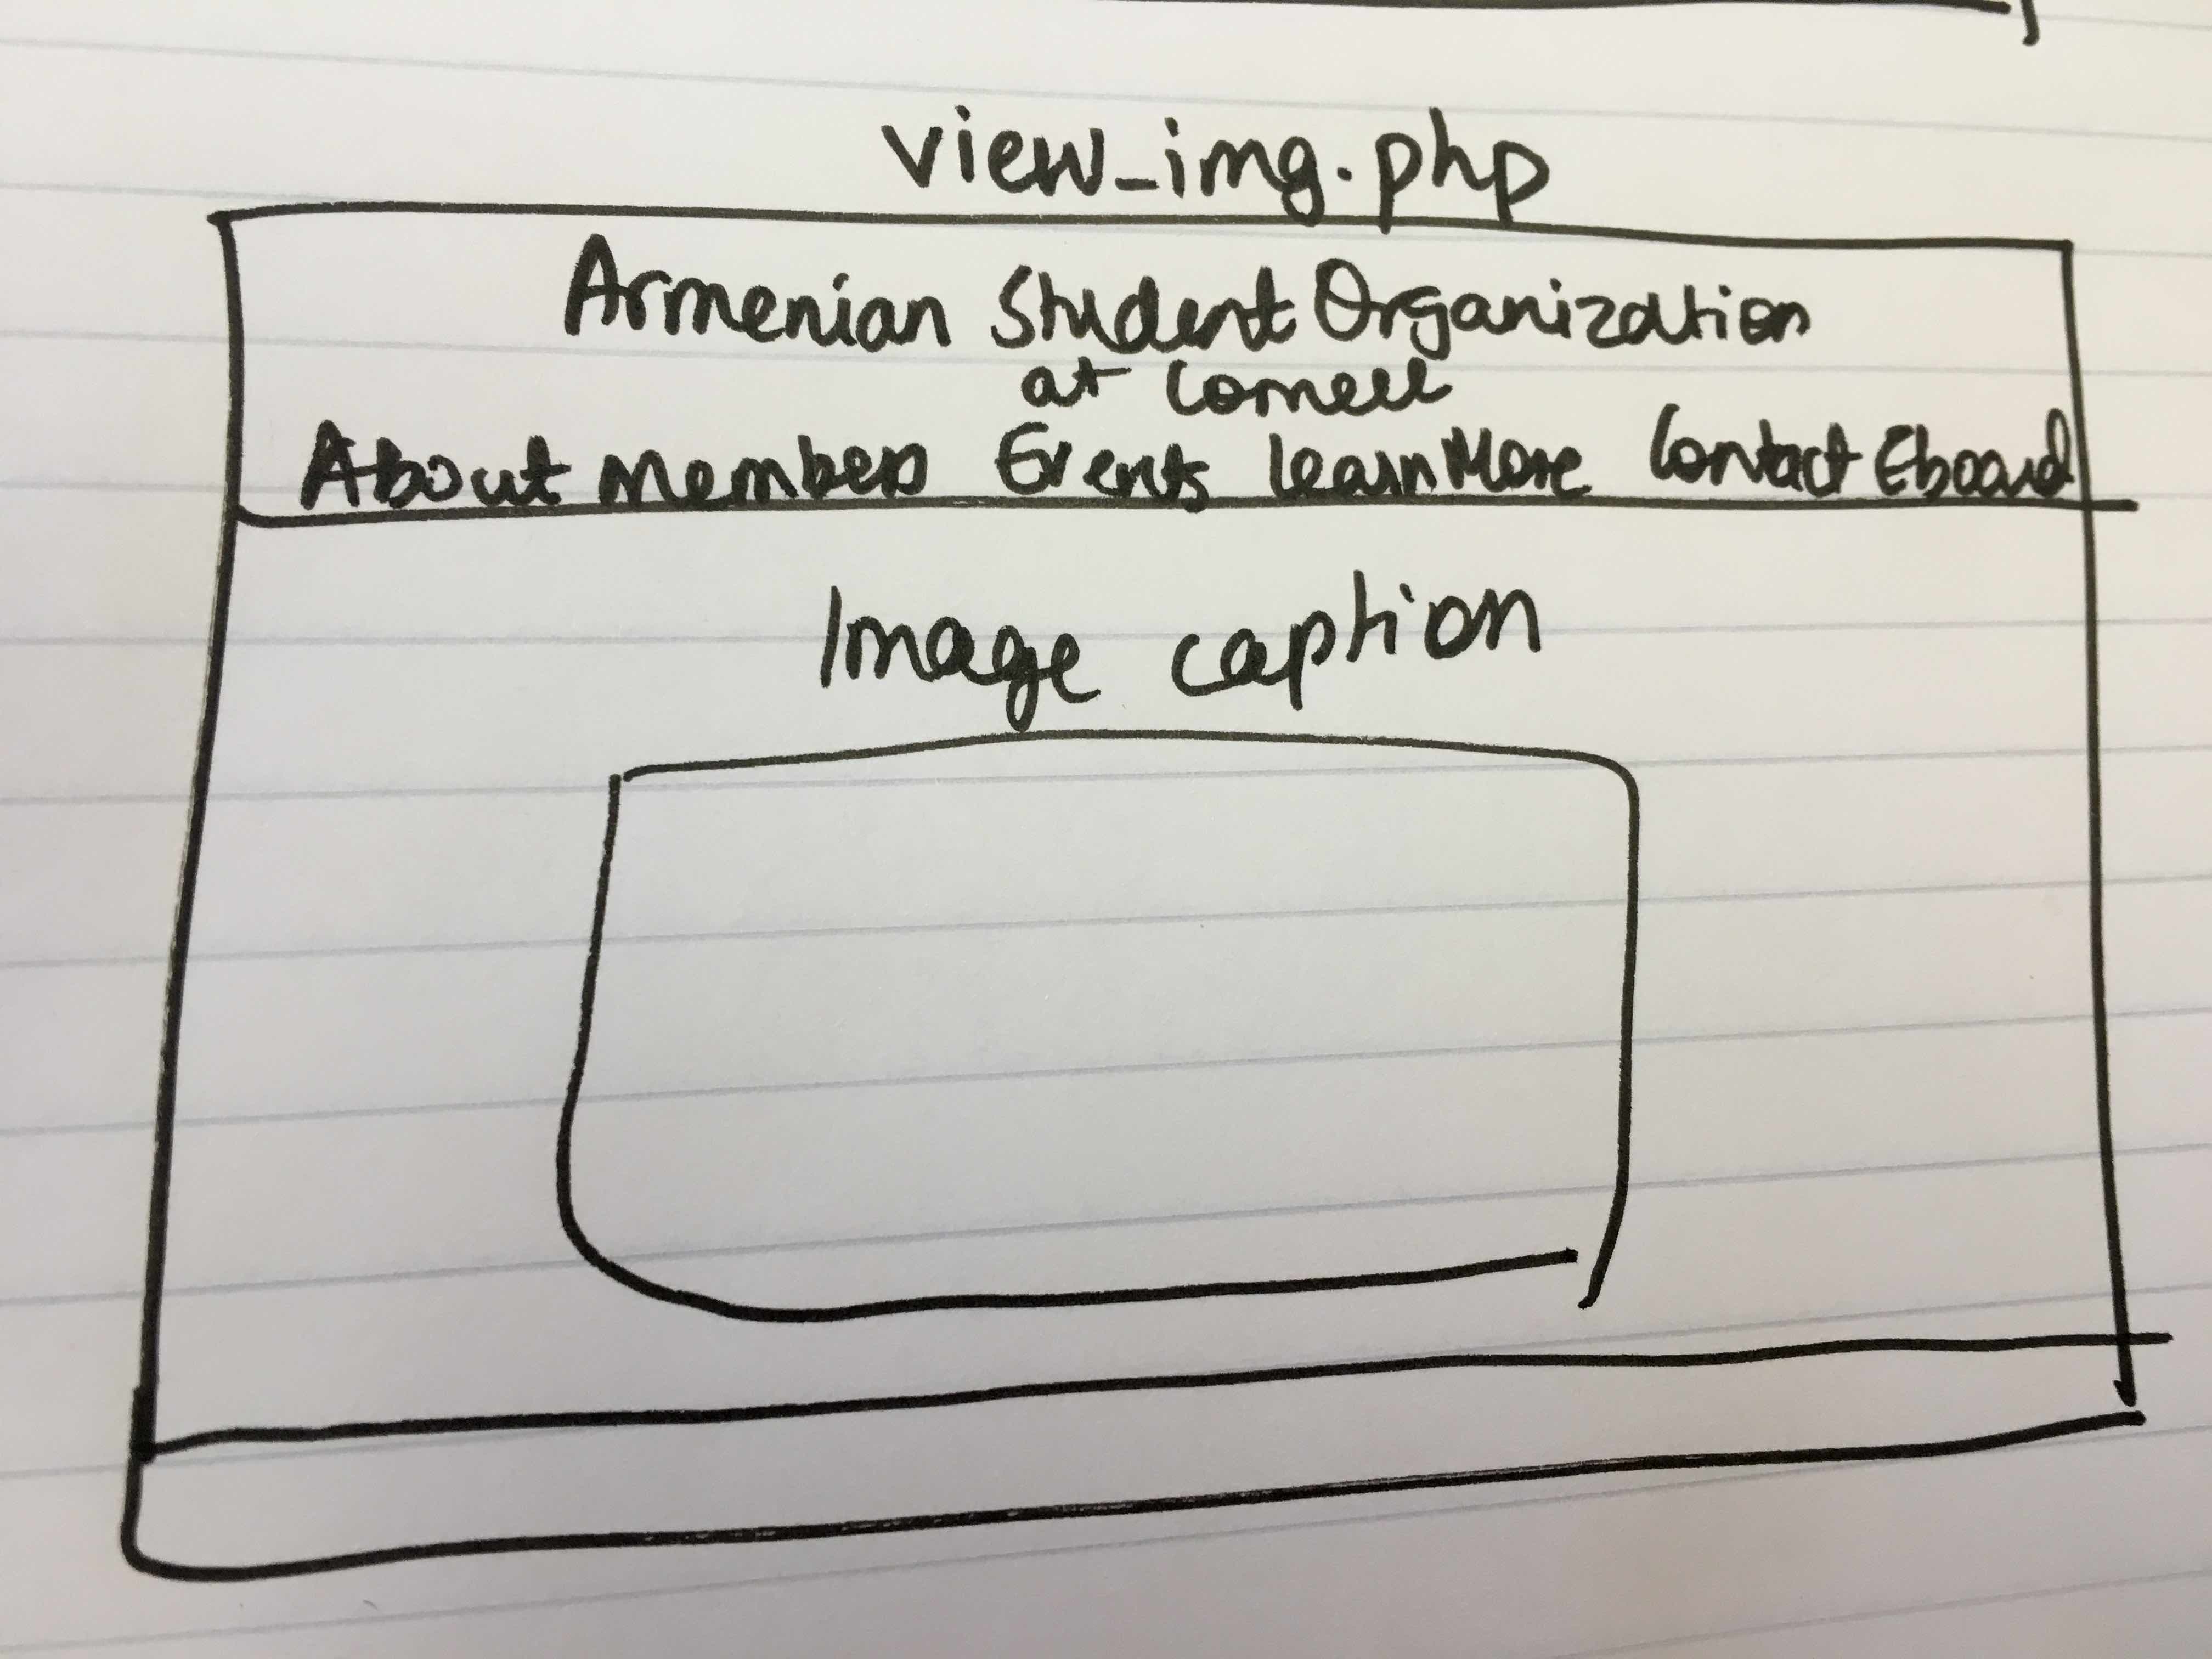 view_img.php
Armenian Student Organization
at Cornell
About Members Events Learn More Contact Eboard
Image caption